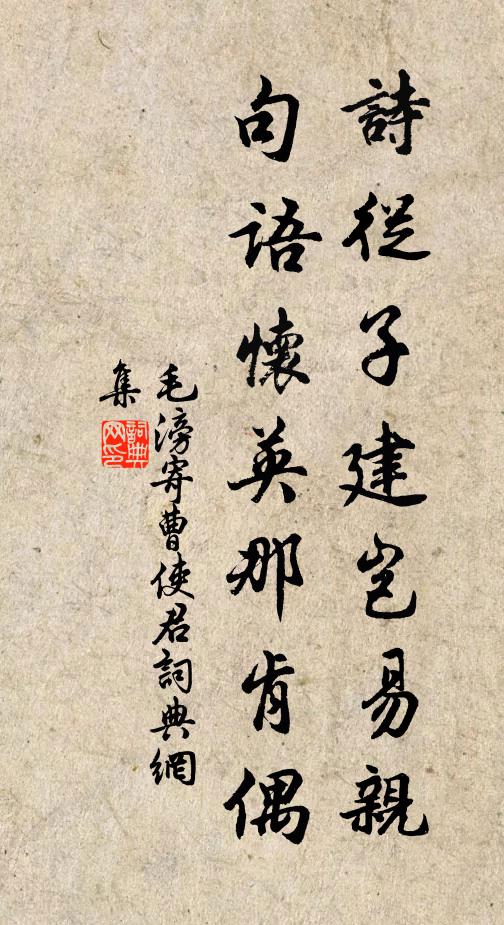 詩從子建豈易親
句語懷英那肯偶
毛滂寄曹使君詞典網
集
詞典
网印